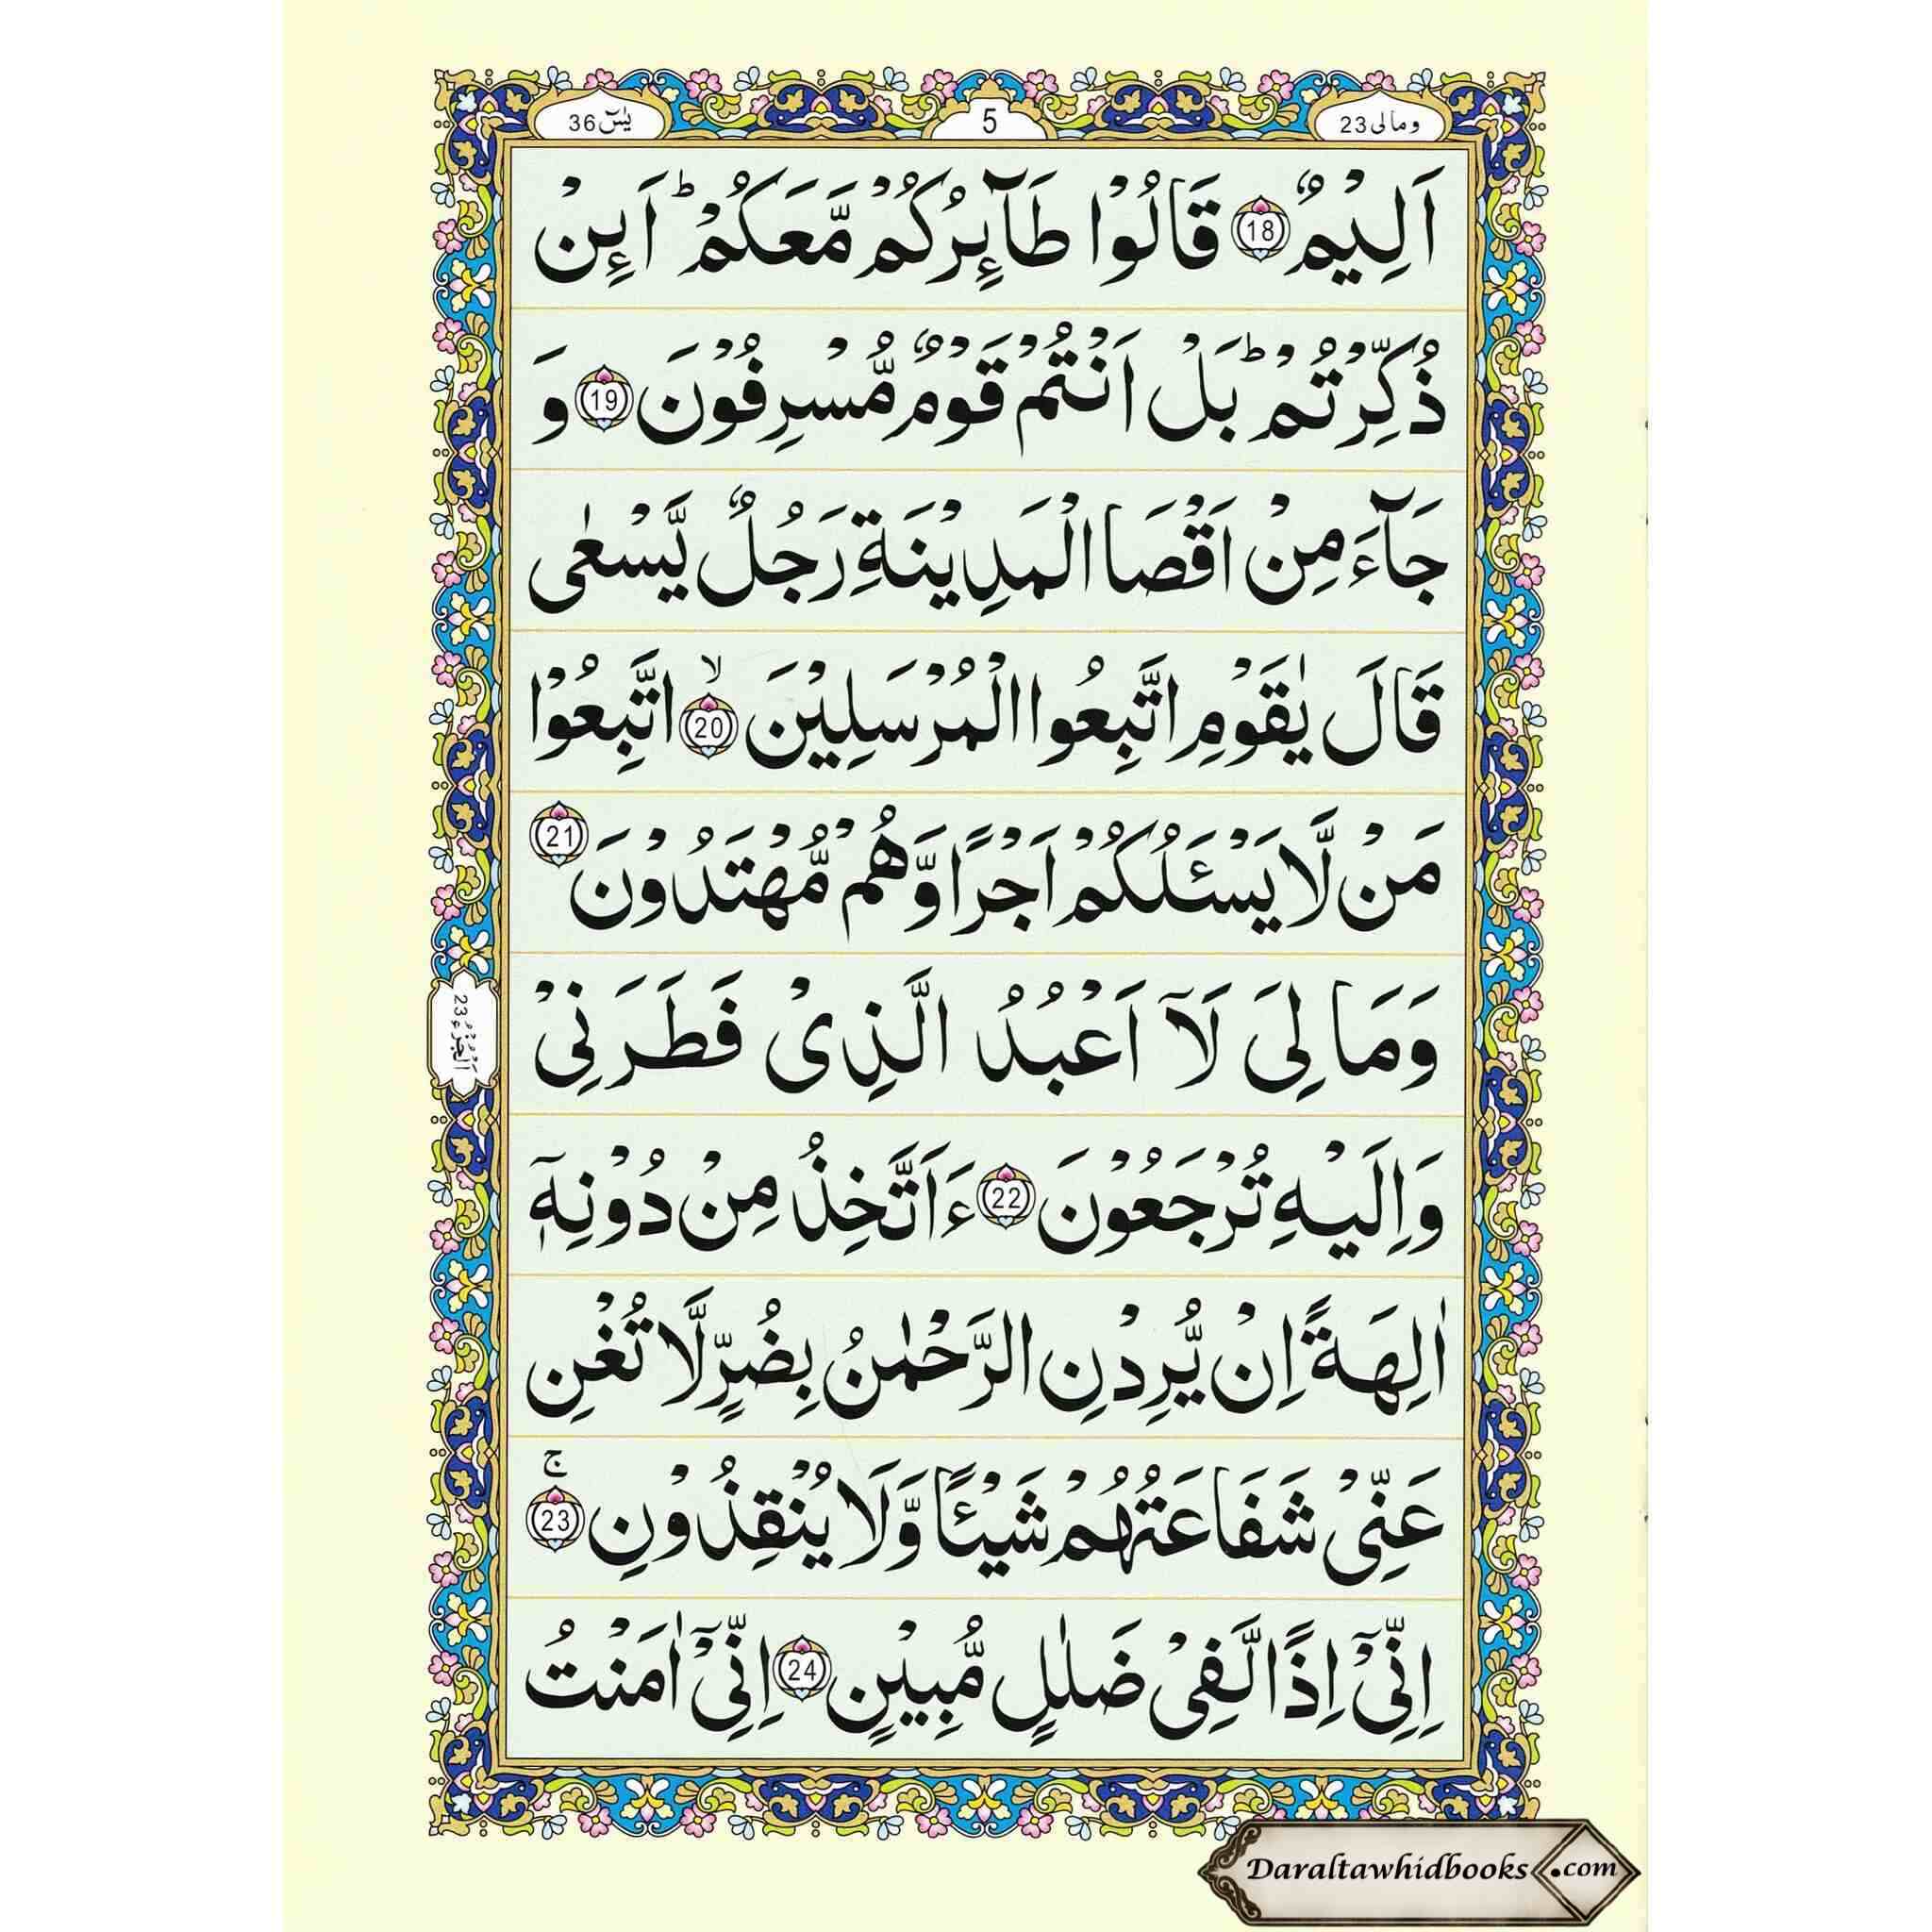 وما لی 23
5
یٰسٓ 36
اَلِیْمٌ 18 قَالُوْا طَآئِرُكُمْ مَّعَكُمْ ؕ اَئِنْ
ذُكِّرْتُمْ ؕ بَلْ اَنْتُمْ قَوْمٌ مُّسْرِفُوْنَ 19 وَ
جَآءَ مِنْ اَقْصَا الْمَدِیْنَةِ رَجُلٌ یَّسْعٰی
قَالَ یٰقَوْمِ اتَّبِعُوا الْمُرْسَلِیْنَ ۙ 20 اتَّبِعُوْا
مَنْ لَّا یَسْئَلُكُمْ اَجْرًا وَّهُمْ مُّهْتَدُوْنَ 21
وَمَا لِیَ لَاۤ اَعْبُدُ الَّذِیْ فَطَرَنِیْ
وَاِلَیْهِ تُرْجَعُوْنَ 22 ءَاَتَّخِذُ مِنْ دُوْنِهٖۤ
اٰلِهَةً اِنْ یُّرِدْنِ الرَّحْمٰنُ بِضُرٍّ لَّا تُغْنِ
عَنِّیْ شَفَاعَتُهُمْ شَیْئًا وَّلَا یُنْقِذُوْنِ ۚ 23
اِنِّیْۤ اِذًا لَّفِیْ ضَلٰلٍ مُّبِیْنٍ 24 اِنِّیْۤ اٰمَنْتُ
اَلْجُزْءُ 23
Daraltawhidbooks.com